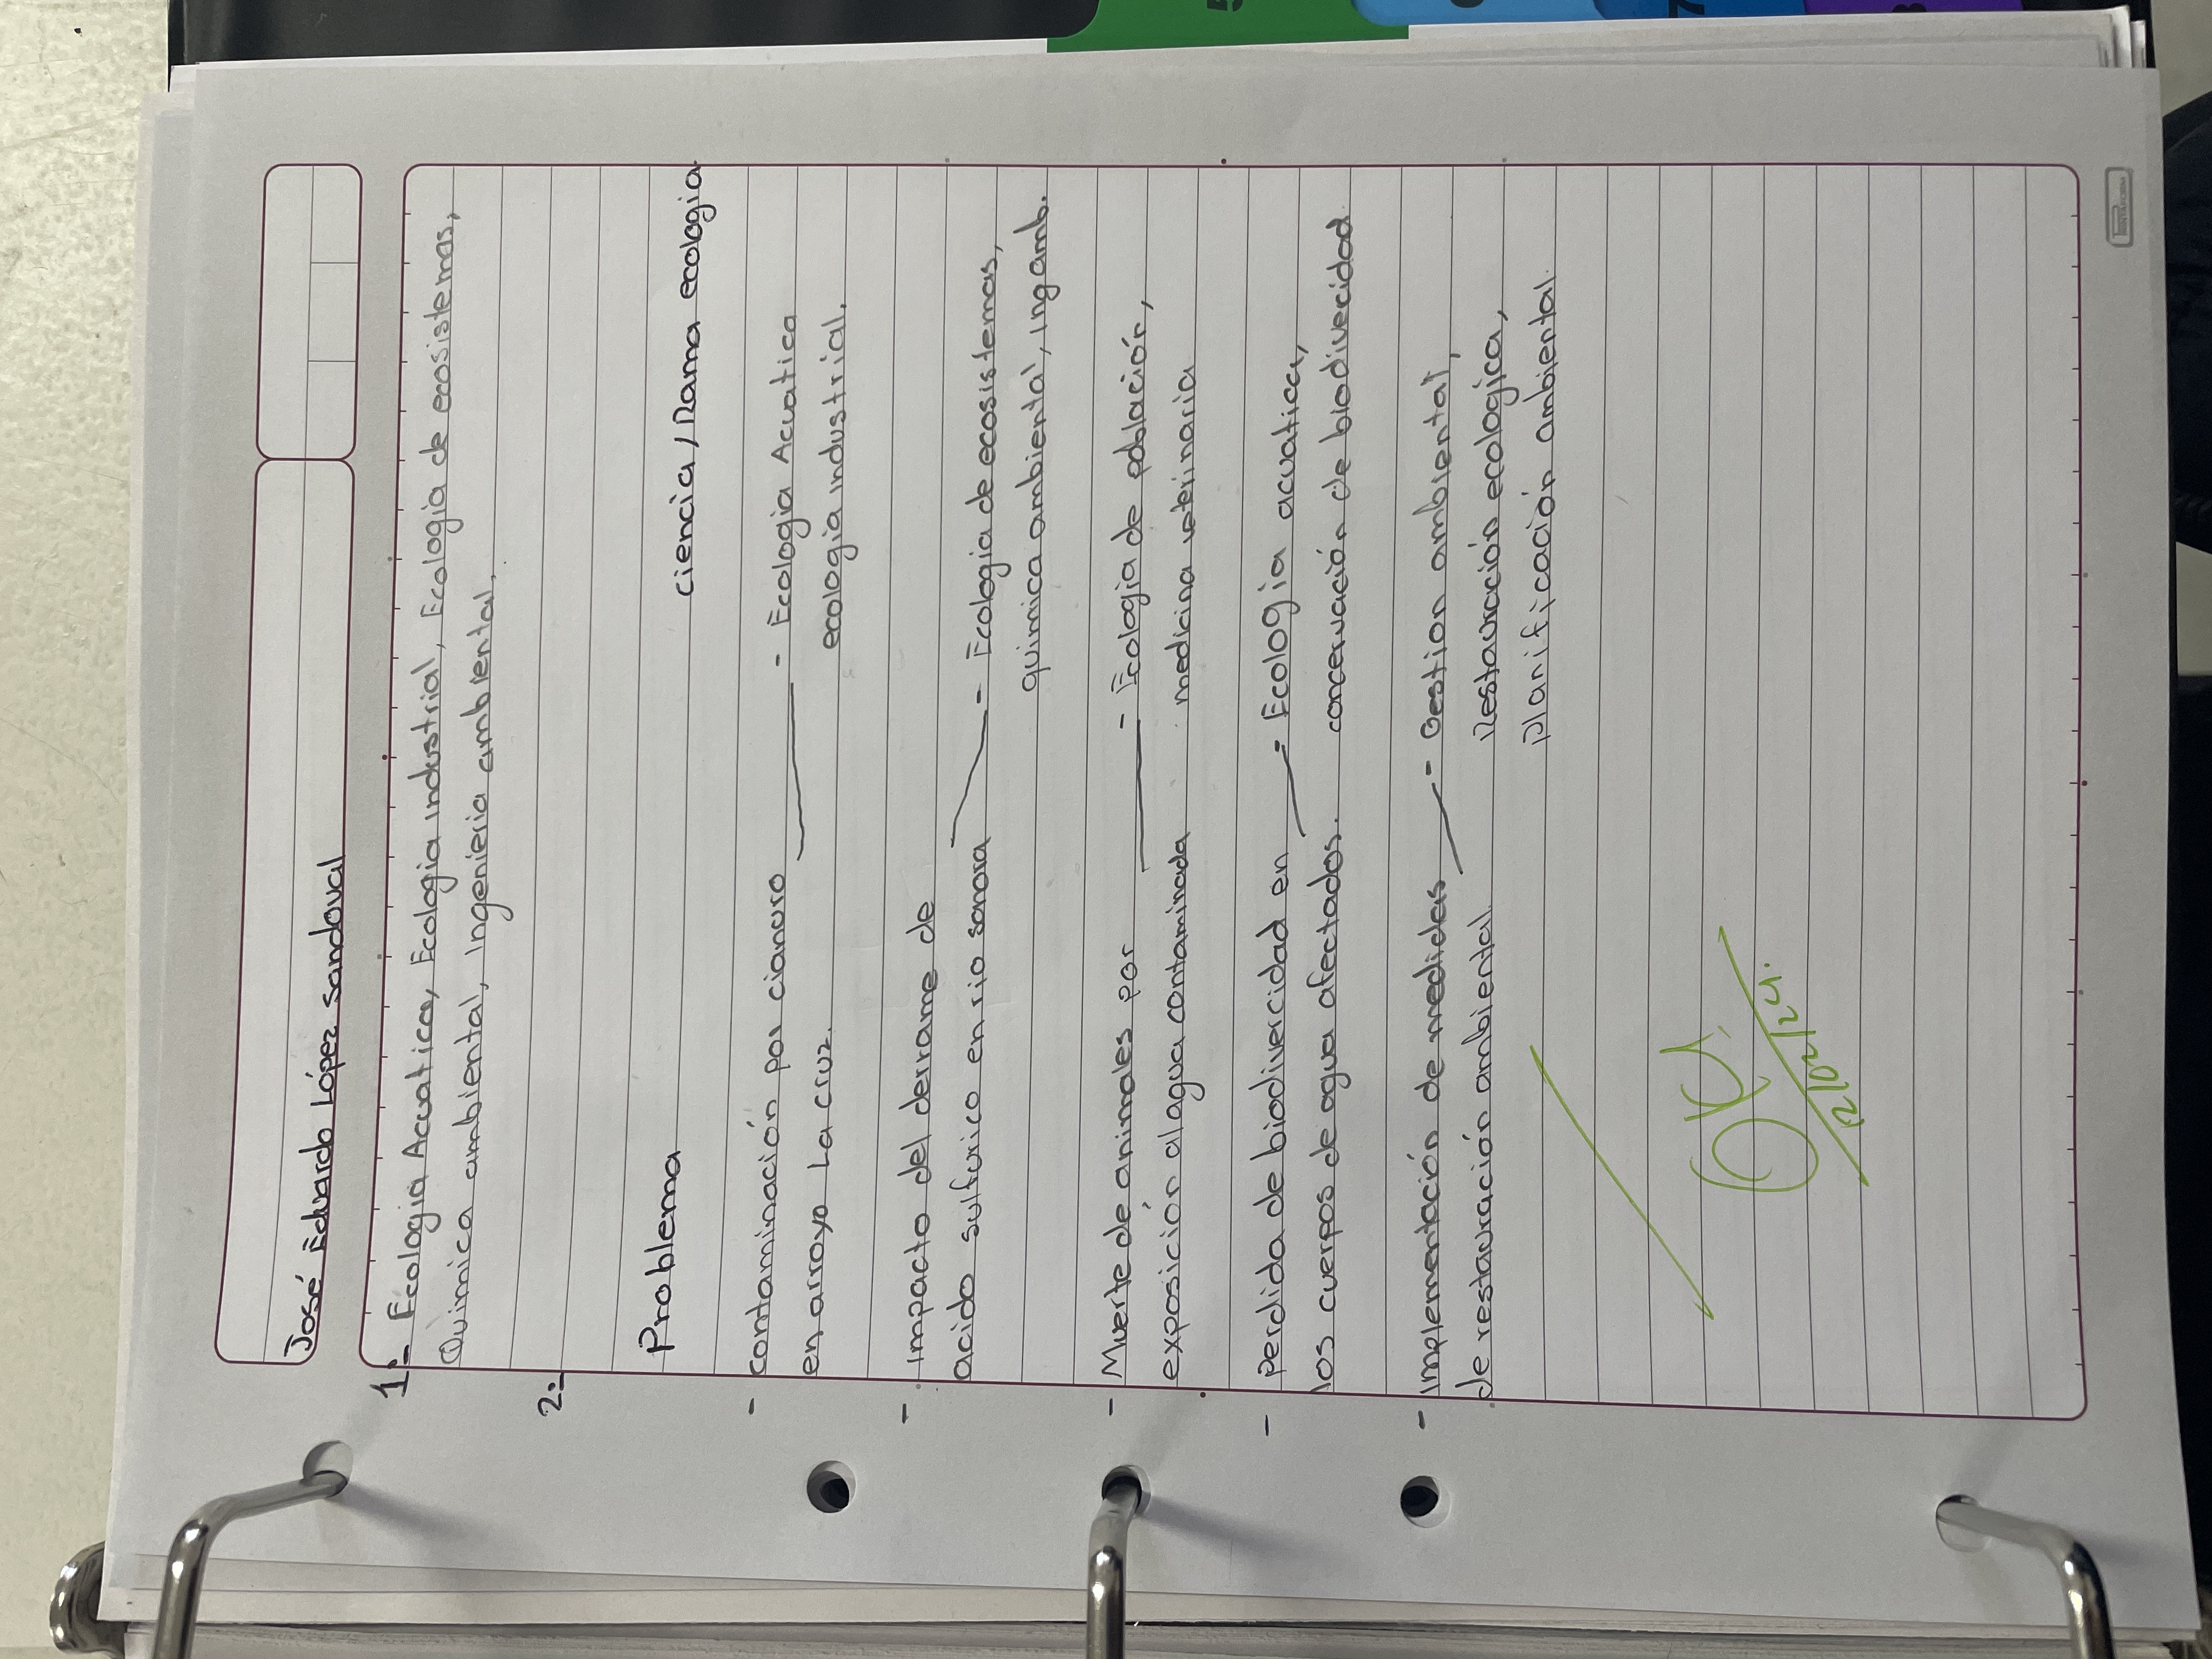 José Eduardo López sandoval
1.- Ecologia Acuatica, Ecologia industrial, Ecologia de ecosistemas,
Quimica ambiental, Ingenieria ambiental.
2.-
Problema ciencia/Rama ecologia
- contaminación por cianuro - Ecologia Acuatica
en arroyo La cruz. ecologia industrial.
- impacto del derrame de
acido sulfurico en rio sonora - Ecologia de ecosistemas,
quimica ambiental, ing amb.
- Muerte de animales por - Ecologia de población,
exposición al agua contaminada medicina veterinaria
- perdida de biodivercidad en - Ecologia acuatica,
los cuerpos de agua afectados. concervación de biodivecidad
- implementación de medidas - Gestion ambiental,
de restauración ambiental. Restauración ecologica,
planificación ambiental.
OK
12/02/24.
5
7
8